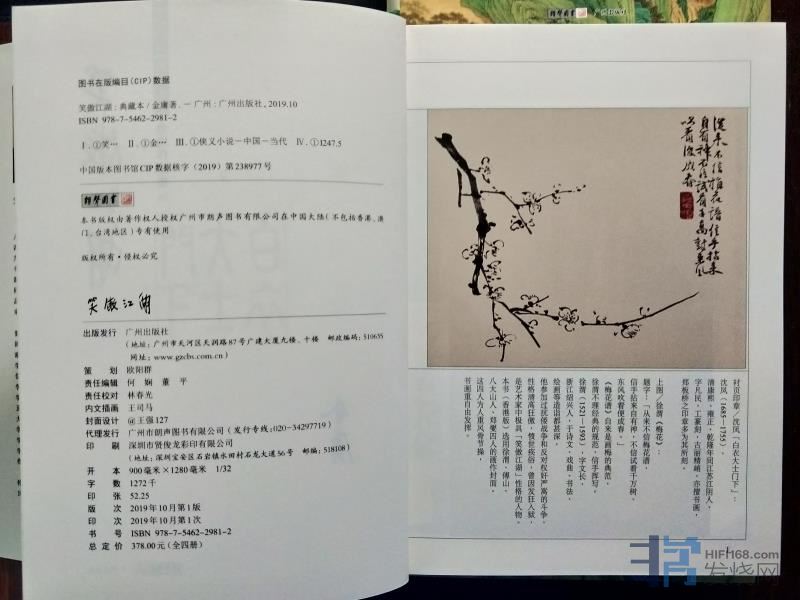 图书在版编目(CIP)数据
笑傲江湖:典藏本/金庸著.—广州:广州出版社,2019.10
ISBN 978-7-5462-2981-2
Ⅰ.①笑… Ⅱ.①金… Ⅲ.①侠义小说—中国—当代 Ⅳ.①I247.5
中国版本图书馆CIP数据核字(2019)第238977号
朗声图书
本书版权由著作权人授权广州市朗声图书有限公司在中国大陆(不包括香港、澳
门、台湾地区)专有使用
版权所有·侵权必究
笑傲江湖
出版发行 广州出版社
(地址:广州市天河区天润路87号广建大厦九楼、十楼 邮政编码:510635
网址:www.gzcbs.com.cn)
策 划 欧阳群
责任编辑 何 娴 董 平
责任校对 林春光
内文插画 王司马
封面设计 @王强127
代理发行 广州市朗声图书有限公司(发行专线:020-34297719)
印 刷 深圳市贤俊龙彩印有限公司
(地址:深圳宝安区石岩镇水田村石龙大道56号 邮编:518108)
开 本 900毫米×1280毫米 1/32
字 数 1272千
印 张 52.25
版 次 2019年10月第1版
印 次 2019年10月第1次
书 号 ISBN 978-7-5462-2981-2
总 定 价 378.00元(全四册)
朗声图书 广州出版社
从来不信梅花谱信手拈来
自有神不信试看千万树东风
吹着便成春
衬页印章/沈凤「白衣大士门下」:
沈凤(1685—1755),
清康熙、雍正、乾隆年间江苏江阴人,
字凡民,工篆刻,古丽精峭,亦擅书画,
郑板桥之印章多为其所刻。
上图/徐渭《梅花》:
题字:「从来不信梅花谱,
信手拈来自有神,不信试看千万树,
东风吹着便成春。」
《梅花谱》自来是画梅的典范,
徐渭不理经典的规范,信手挥写。
徐渭(1521—1593),字文长,
浙江绍兴人,于诗文、戏曲、书法、
绘画等造诣都甚深。
他参加过抗倭战争和反对权奸严嵩的斗争,
性格清高狂傲,愤世疾俗,曾因发狂入狱,
是艺术家中极具「笑傲江湖」性格的人物。
本书(香港版)选用徐渭、傅山、
八大山人、郑燮四人的画作封面,
这四人为人重风骨节操,
书画重自由发挥。
HIFI168.com
发烧网